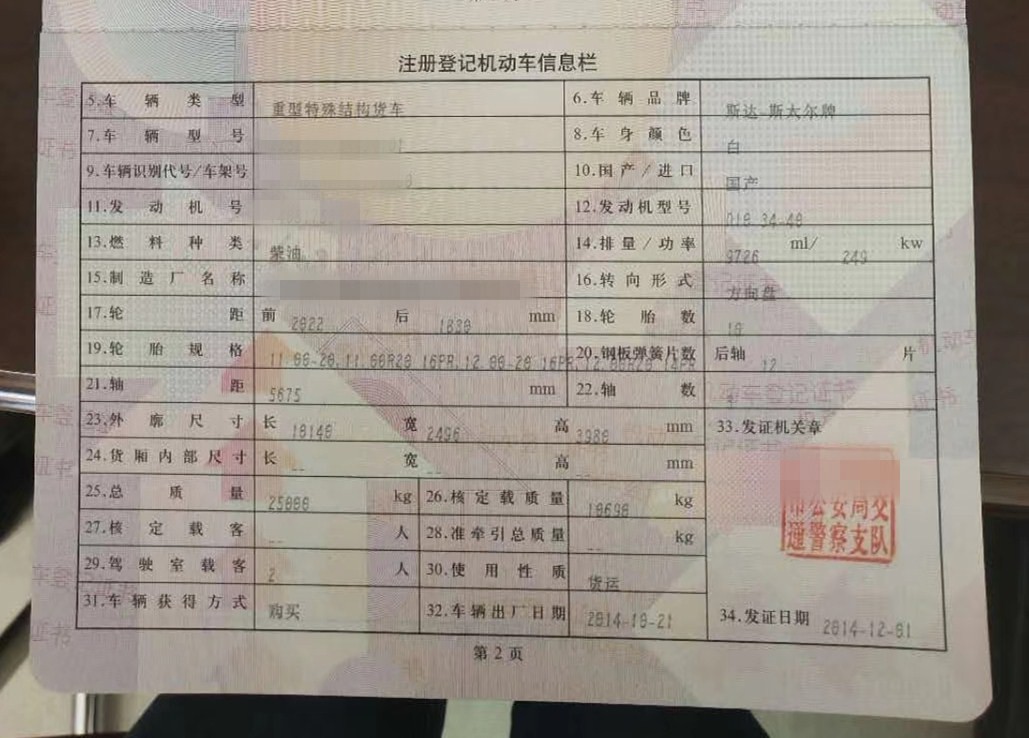 注册登记机动车信息栏
5.车辆类型 重型特殊结构货车 6.车辆品牌 斯达-斯太尔牌
7.车辆型号 8.车身颜色 白
9.车辆识别代号/车架号 10.国产/进口 国产
11.发动机号 12.发动机型号 D10.34-40
13.燃料种类 柴油 14.排量/功率 9726 ml/ 249 kw
15.制造厂名称 16.转向形式 方向盘
17.轮距 前 2022 后 1830 mm 18.轮胎数 10
19.轮胎规格 11.00-20,11.00R20 16PR,12.00-20 16PR,12.00R20 20.钢板弹簧片数 后轴 12 片
21.轴距 5675 mm 22.轴数
23.外廓尺寸 长 10140 宽 2496 高 3980 mm 33.发证机关章
24.货厢内部尺寸 长 -- 宽 -- 高 -- mm
25.总质量 25000 kg 26.核定载质量 10690 kg
市公安局交
通警察支队
27.核定载客 -- 人 28.准牵引总质量 -- kg
29.驾驶室载客 2 人 30.使用性质 货运
31.车辆获得方式 购买 32.车辆出厂日期 2014-10-21 34.发证日期 2014-12-01
第2页